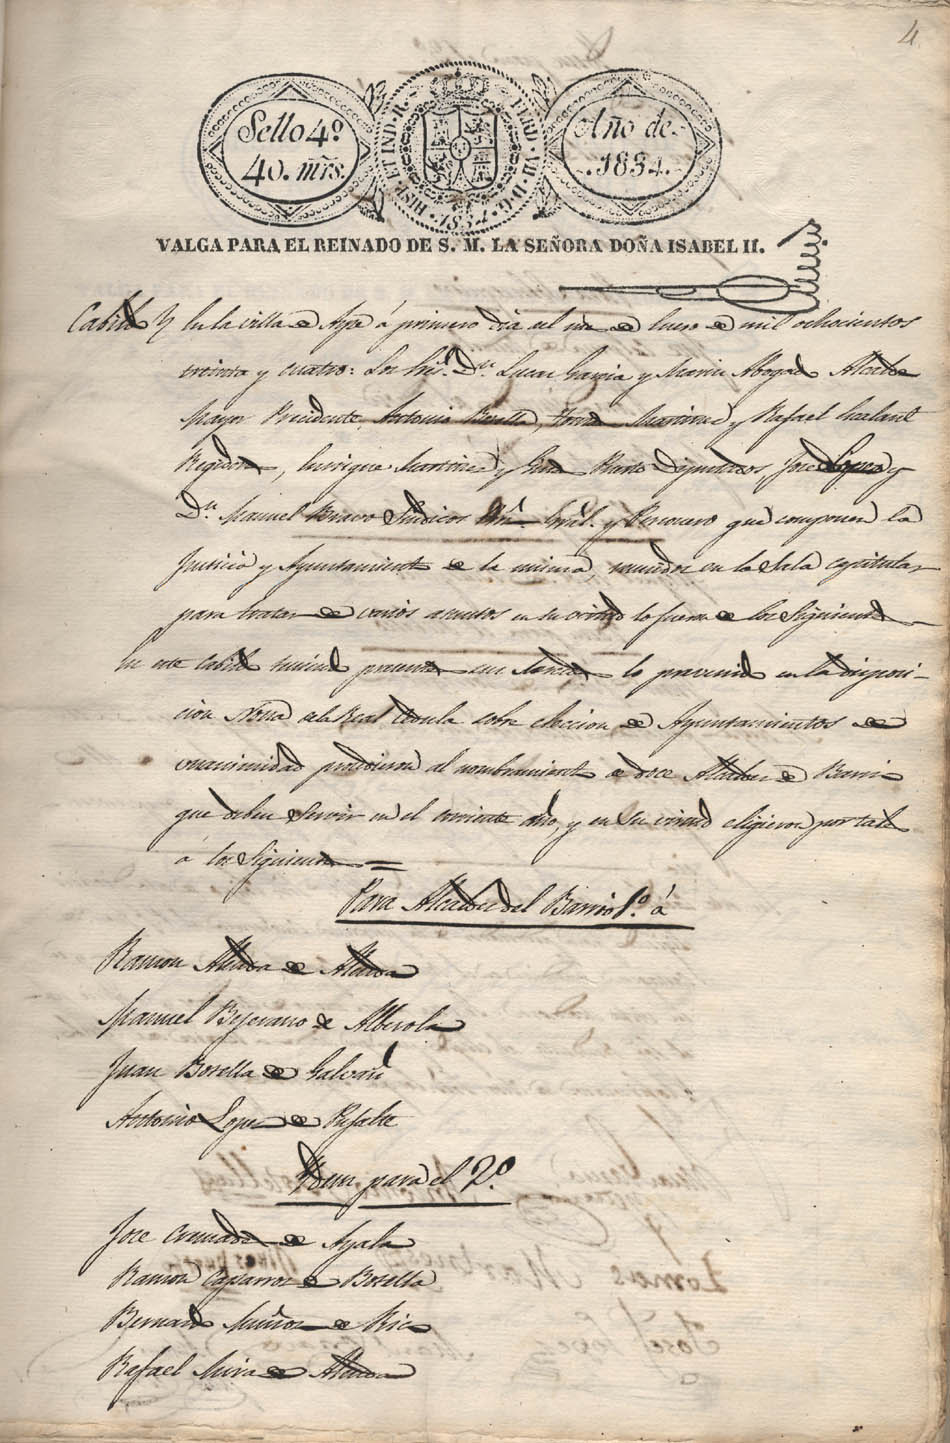 4
Sello 4º
40. mrs.
HISP. ET IND. R.
FERD. VII. D. G.
1834
Año de
1834.
VALGA PARA EL REINADO DE S. M. LA SEÑORA DOÑA ISABEL II.
Cabildo / En la villa de Aspe á primero dia del mes de Enero de mil ochocientos
treinta y cuatro: Los Sres. Dn. Lucas Garcia y Maria Abogado Alcalde
Mayor Presidente, Antonio Botella, Tomas Martinez y Rafael
Regidores, Enrique Martinez y Diputados, Jose Lopez y
Dn. Manuel Bravo Sindicos Gral. y Personero que componen la
Justicia y Ayuntamiento de la misma, reunidos en la Sala capitular
para tratar de varios asuntos en su virtud lo fueron de los Siguientes
En este Cabildo teniendo presente sus mercedes lo prevenido en la disposi-
cion Nona de la Real Cedula sobre eleccion de Ayuntamientos de
unanimidad procedieron al nombramiento de doce Alcaldes de Barrio
que deben Servir en el corriente año, y en Su virtud eligieron por tales
á los Siguientes =
Para Alcaldes del Barrio 1.º á
Ramon Alcaraz de Alcaraz
Manuel Bejerano de Alberola
Juan Botella de Galvañ
Antonio Lopez de
Ydem para el 2.º
Jose Cremades de Ayala
Ramon Caparros de Botella
Bernardo Muñoz de Rico
Rafael Mira de